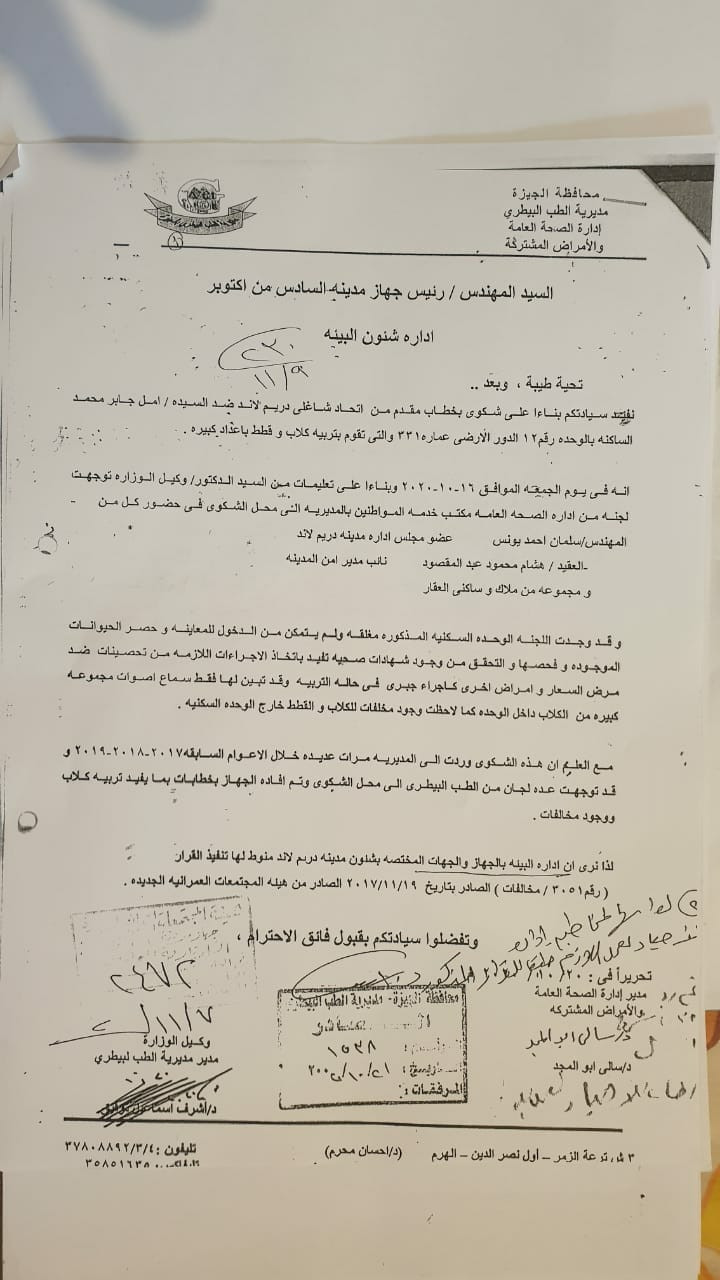 محافظة الجيزة
مديرية الطب البيطري
إدارة الصحة العامة
والأمراض المشتركة
السيد المهندس / رئيس جهاز مدينه السادس من اكتوبر
اداره شئون البيئه
٢٣٠
١١/٩
تحية طيبة ، وبعد ..
نفيد سيادتكم بناءا على شكوى بخطاب مقدم من اتحاد شاغلى دريم لاند ضد السيده / امل جابر محمد
الساكنه بالوحده رقم ١٢ الدور الأرضى عماره ٣٣١ والتى تقوم بتربيه كلاب و قطط باعداد كبيره .
انه فى يوم الجمعه الموافق ١٦-١٠-٢٠٢٠ وبناءا على تعليمات من السيد الدكتور/ وكيل الوزاره توجهت
لجنه من اداره الصحه العامه مكتب خدمه المواطنين بالمديريه الى محل الشكوى فى حضور كل من
المهندس/سلمان احمد يونس عضو مجلس اداره مدينه دريم لاند
-العقيد / هشام محمود عبد المقصود نائب مدير امن المدينه
و مجموعه من ملاك و ساكنى العقار
و قد وجدت اللجنه الوحده السكنيه المذكوره مغلقه ولم يتمكن من الدخول للمعاينه و حصر الحيوانات
الموجوده و فحصها و التحقق من وجود شهادات صحيه تفيد باتخاذ الاجراءات اللازمه من تحصينات ضد
مرض السعار و امراض اخرى كاجراء جبرى فى حاله التربيه وقد تبين لها فقط سماع اصوات مجموعه
كبيره من الكلاب داخل الوحده كما لاحظت وجود مخلفات للكلاب و القطط خارج الوحده السكنيه .
مع العلم ان هذه الشكوى وردت الى المديريه مرات عديده خلال الاعوام السابقه ٢٠١٧-٢٠١٨-٢٠١٩ و
قد توجهت عده لجان من الطب البيطرى الى محل الشكوى وتم افاده الجهاز بخطابات بما يفيد تربيه كلاب
ووجود مخالفات .
لذا نرى ان اداره البيئه بالجهاز والجهات المختصه بشئون مدينه دريم لاند منوط لها تنفيذ القرار
( رقم ٣٠٥١ / مخالفات ) الصادر بتاريخ ٢٠١٧/١١/١٩ الصادر من هيئه المجتمعات العمرانيه الجديده .
وتفضلوا سيادتكم بقبول فائق الاحترام ،
٢٤٧٢
١١/٧
تحريراً فى : ٢٠
مدير إدارة الصحة العامة
والأمراض المشتركه
د/سالى ابو المجد
د/سالى ابو المجد
محافظة الجيزة - مديرية الطب البيطرى
١٥٣٨
المرفقات :
وكيل الوزارة
مدير مديرية الطب لبيطري
د/أشرف اسماعيل
٣ ش ترعة الزمر – أول نصر الدين – الهرم (د/احسان محرم) تليفون : ٣٧٨٠٨٨٩٢/٣/٤